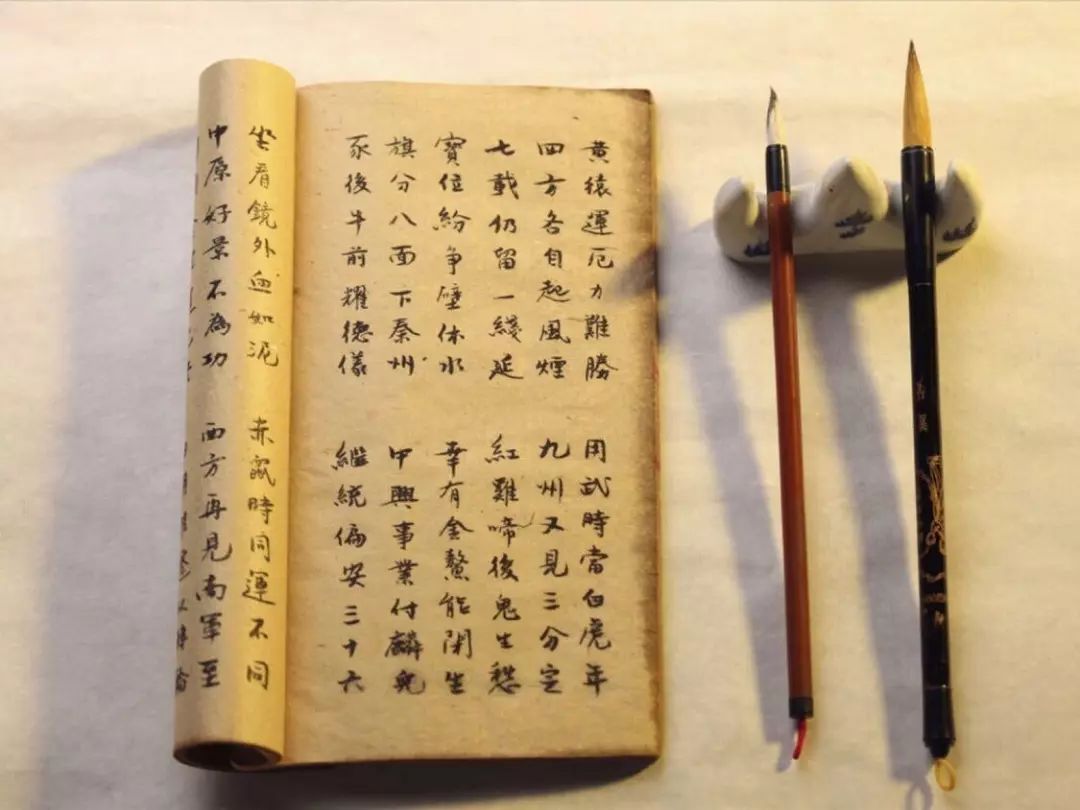 黃猿運厄力難勝 用武時當白虎年
四方各自起風煙 九州又見三分定
七載仍留一綫延 紅雞啼後鬼生愁
寶位紛争壁休水 幸有金鰲能閉生
旗分八面下秦州 甲興事業付麟兒
豕後牛前耀德儀 繼統偏安三十六
坐看鏡外血如泥 赤鼠時同運不同
中原好景不為功 西方再見南軍至